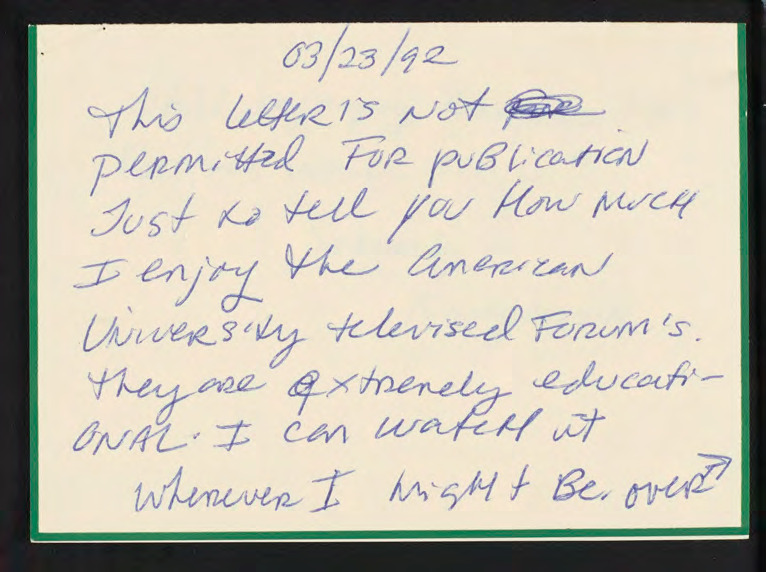 03/23/92
This letter is not
permitted for publication
Just to tell you How Much
I enjoy the American
University televised Forum's.
they are extremely educati-
onal. I can watch it
wherever I might Be. over →